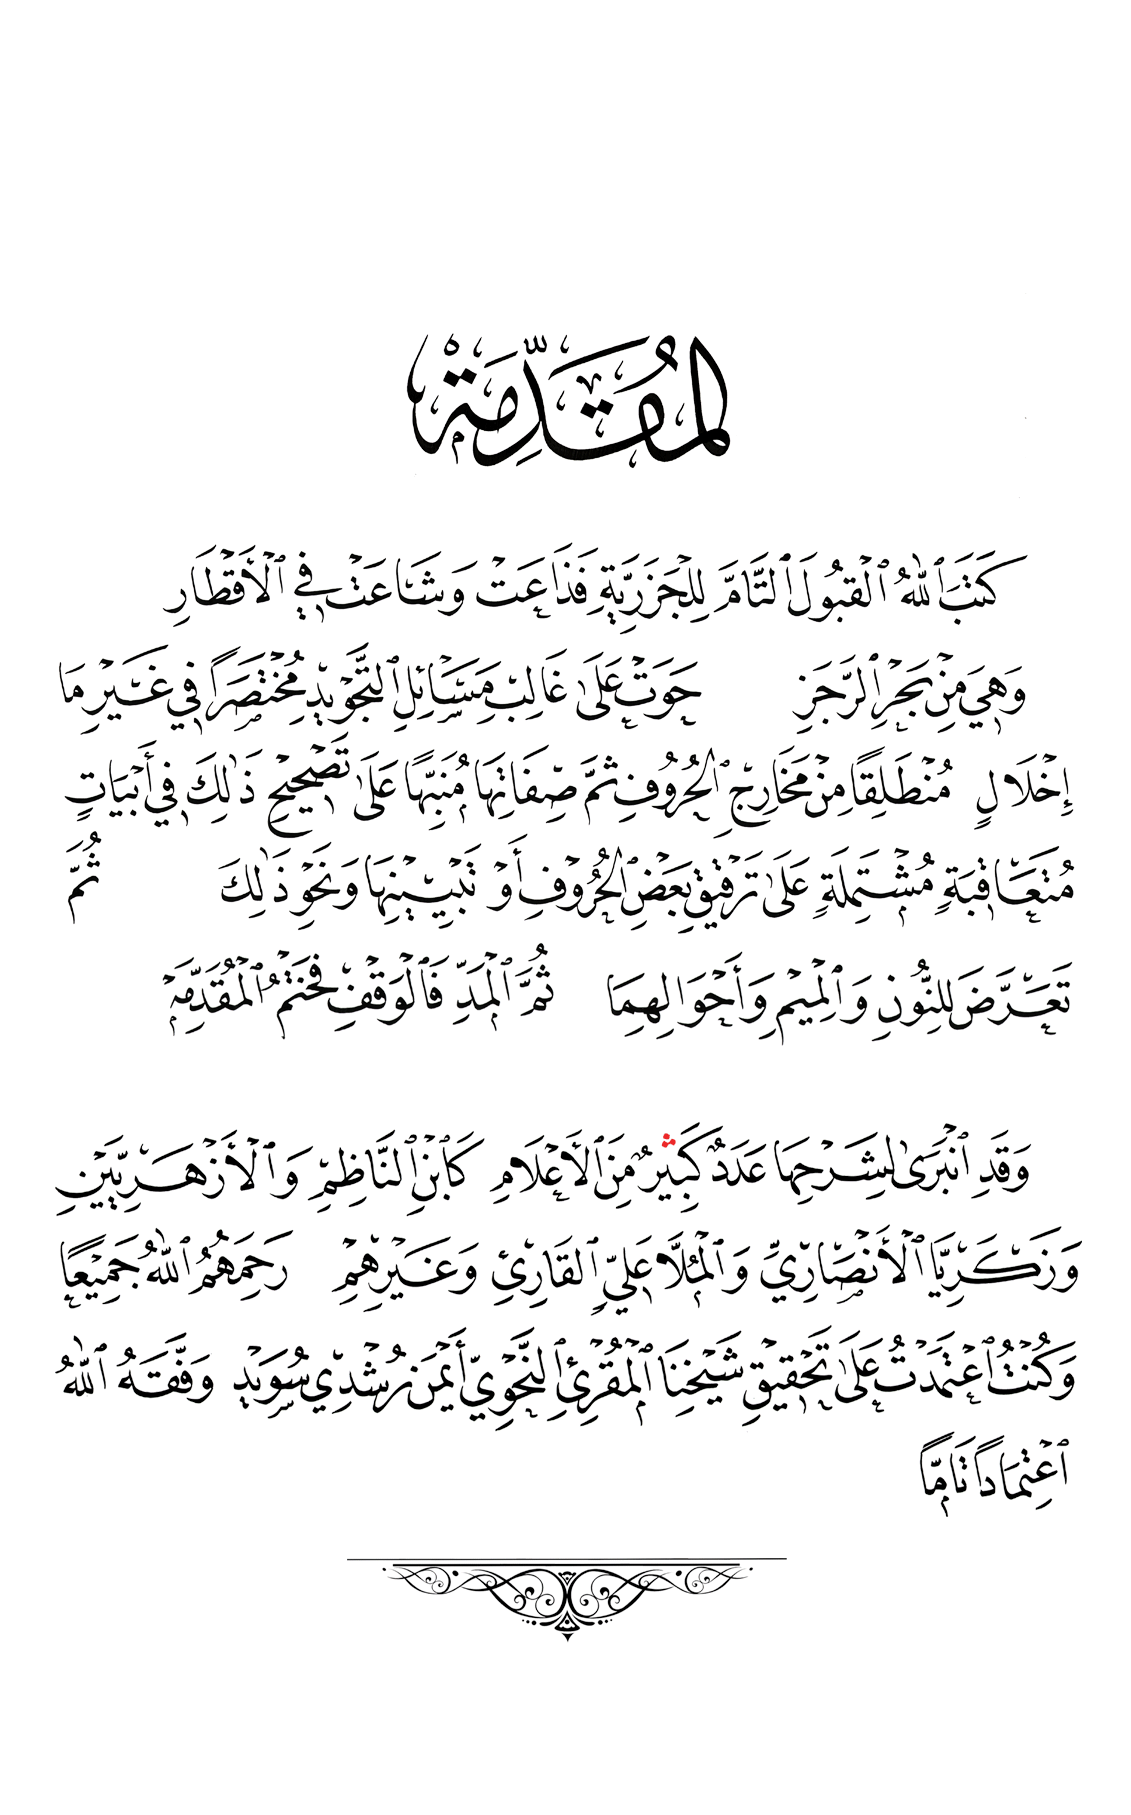 المُقَدِّمَةْ
كَتَبَ ٱللّٰهُ ٱلْقَبُولَ ٱلتَّامَّ لِلْجَزَرِيَّةِ فَذَاعَتْ وَشَاعَتْ فِي ٱلْأَقْطَارِ
وَهِيَ مِنْ بَحْرِ ٱلرَّجَزِ حَوَتْ عَلَىٰ غَالِبِ مَسَائِلِ ٱلتَّجْوِيدِ مُخْتَصَرًا فِي غَيْرِ مَا
إِخْلَالٍ مُنْطَلِقًا مِنْ مَخَارِجِ ٱلْحُرُوفِ ثُمَّ صِفَاتِهَا مُنَبِّهًا عَلَىٰ تَصْحِيحِ ذَٰلِكَ فِي أَبْيَاتٍ
مُتَعَاقِبَةٍ مُشْتَمِلَةٍ عَلَىٰ تَرْقِيقِ بَعْضِ ٱلْحُرُوفِ أَوْ تَبْيِينِهَا وَنَحْوِ ذَٰلِكَ ثُمَّ
تَعَرَّضَ لِلنُّونِ وَٱلْمِيمِ وَأَحْوَالِهِمَا ثُمَّ ٱلْمَدِّ فَٱلْوَقْفِ فَخَتْمُ ٱلْمُقَدِّمَةْ
وَقَدِ ٱنْبَرَىٰ لِشَرْحِهَا عَدَدٌ كَبِثيرٌ مِنَ ٱلْأَعْلَامِ كَٱبْنِ ٱلنَّاظِمِ وَٱلْأَزْهَرِيَّيْنِ
وَزَكَرِيَّا ٱلْأَنْصَارِيِّ وَٱلْمُلَّا عَلِيٍّ ٱلقَارِئِ وَغَيْرِهِمْ رَحِمَهُمُ ٱللّٰهُ جَمِيْعًا
وَكُنْتُ ٱعْتَمَدْتُ عَلَىٰ تَحْقِيْقِ شَيْخِنَا ٱلْمُقْرِئِ ٱلنَّحْوِيِّ أَيْمَن رُشْدِي سُوَيْد وَفَّقَهُ ٱللّٰهُ
ٱعْتِمَادًا تَامًّا